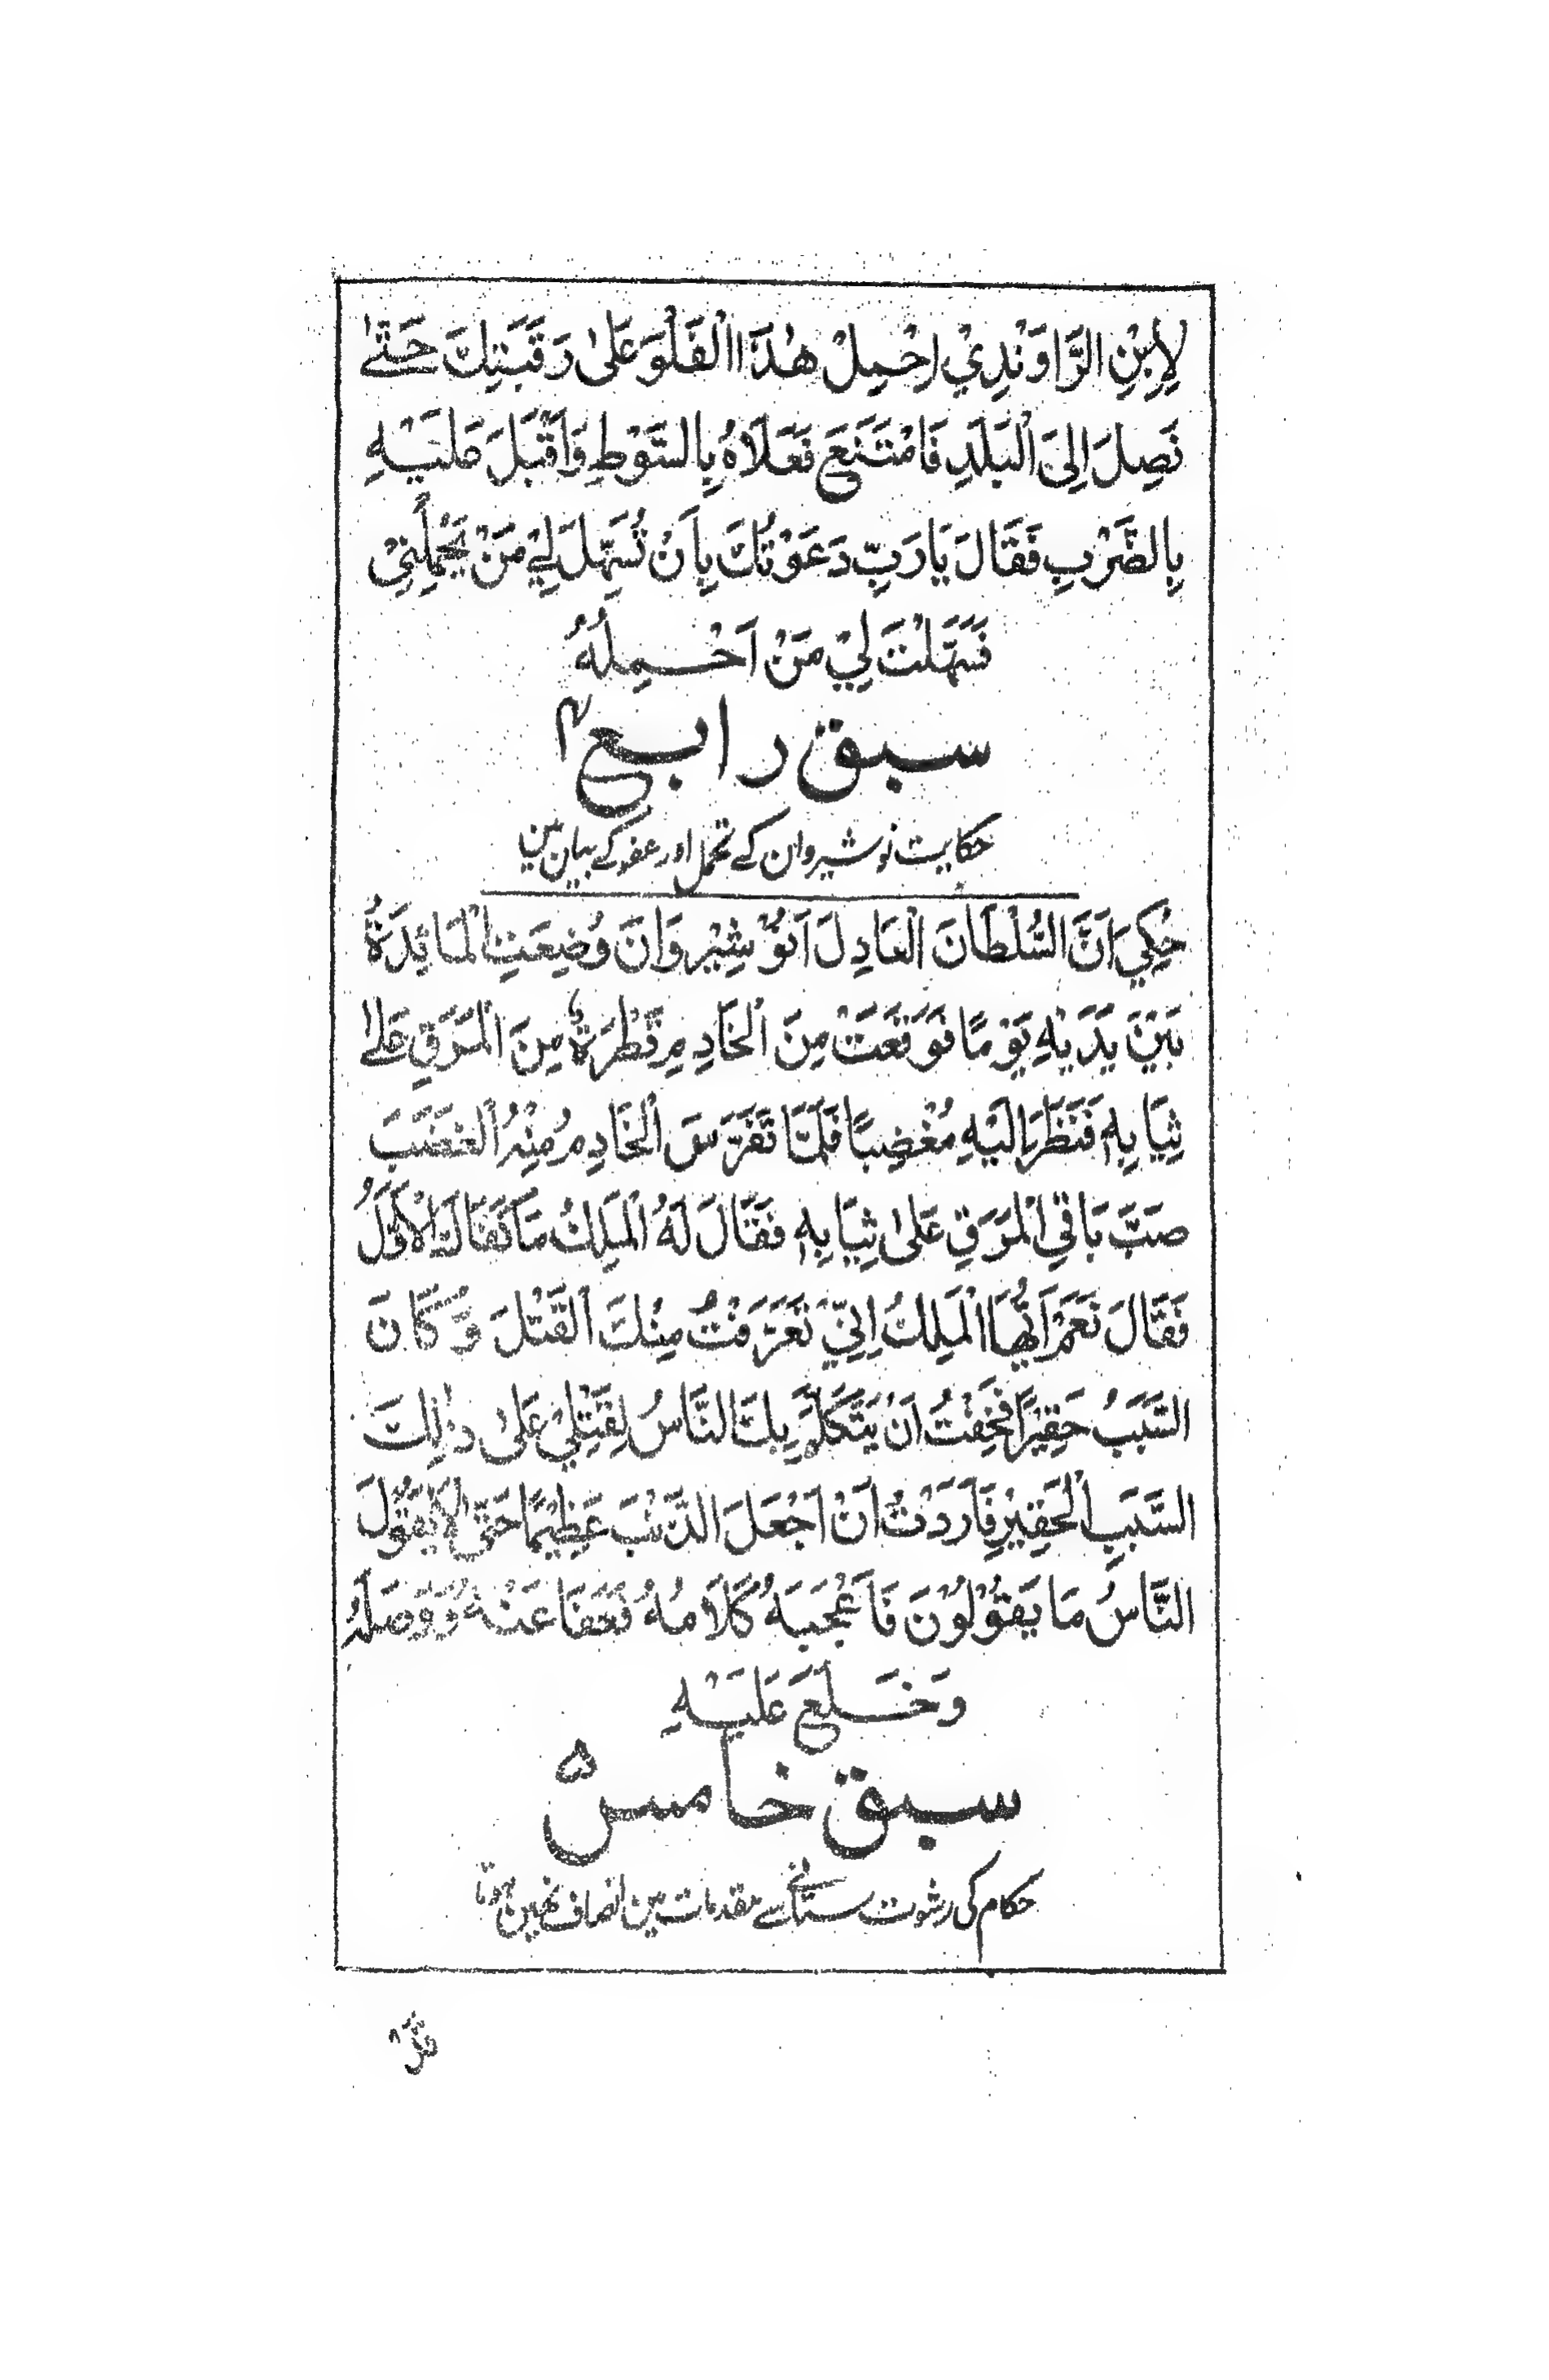 لِاِبْنِ الرَّاوَنْدِيْ اِحْمِلْ هٰذَا الْفَلُوَ عَلٰى رَقَبَتِكَ حَتّٰے
نَصِلَ اِلَى الْبَلَدِ فَامْتَنَعَ فَعَلَاهُ بِالسَّوْطِ وَاَقْبَلَ عَلَيْهِ
بِالضَّرْبِ فَقَالَ يَا رَبِّ دَعَوْتُكَ بِاَنْ تُسَهِّلَ لِيْ مَنْ يَحْمِلُنِيْ
فَسَهَّلْتَ لِيْ مَنْ اَحْمِلُهُ
سبق رابع ۴
حکایت نوشیروان کے تحمل اور عفو کے بیان مین
حُكِيَ اَنَّ السُّلْطَانَ الْعَادِلَ اَنُوْشِيْرَوَانَ وُضِعَتِ الْمَائِدَةُ
بَيْنَ يَدَيْهِ يَوْمًا فَوَقَعَتْ مِنَ الْخَادِمِ قَطْرَةٌ مِنَ الْمَرَقِ عَلٰے
ثِيَابِهٖ فَنَظَرَ اِلَيْهِ مُغْضِبًا فَلَمَّا تَفَرَّسَ الْخَادِمُ مِنْهُ الْغَضَبَ
صَبَّ بَاقِي الْمَرَقِ عَلٰى ثِيَابِهٖ فَقَالَ لَهُ الْمَلِكُ مَا كَفَاكَ الْاَوَّلُ
فَقَالَ نَعَمْ اَيُّهَا الْمَلِكُ اِنِّيْ تَعَرَّفْتُ مِنْكَ الْقَتْلَ وَكَانَ
السَّبَبُ حَقِيْرًا فَخِفْتُ اَنْ يَتَكَلَّمَ بِكَ النَّاسُ لِقَتْلِيْ عَلٰى ذٰلِكَ
السَّبَبِ الْحَقِيْرِ فَاَرَدْتُ اَنْ اَجْعَلَ الذَّنْبَ عَظِيْمًا حَتّٰى لَا يَقُوْلَ
النَّاسُ مَا يَقُوْلُوْنَ فَاَعْجَبَهُ كَلَامُهُ فَعَفَا عَنْهُ وَوَصَلَهُ
وَخَلَعَ عَلَيْهِ
سبق خامس ۵
حکام کی رشوت ستانی سے مقدمات مین انصاف نہین ہوتا